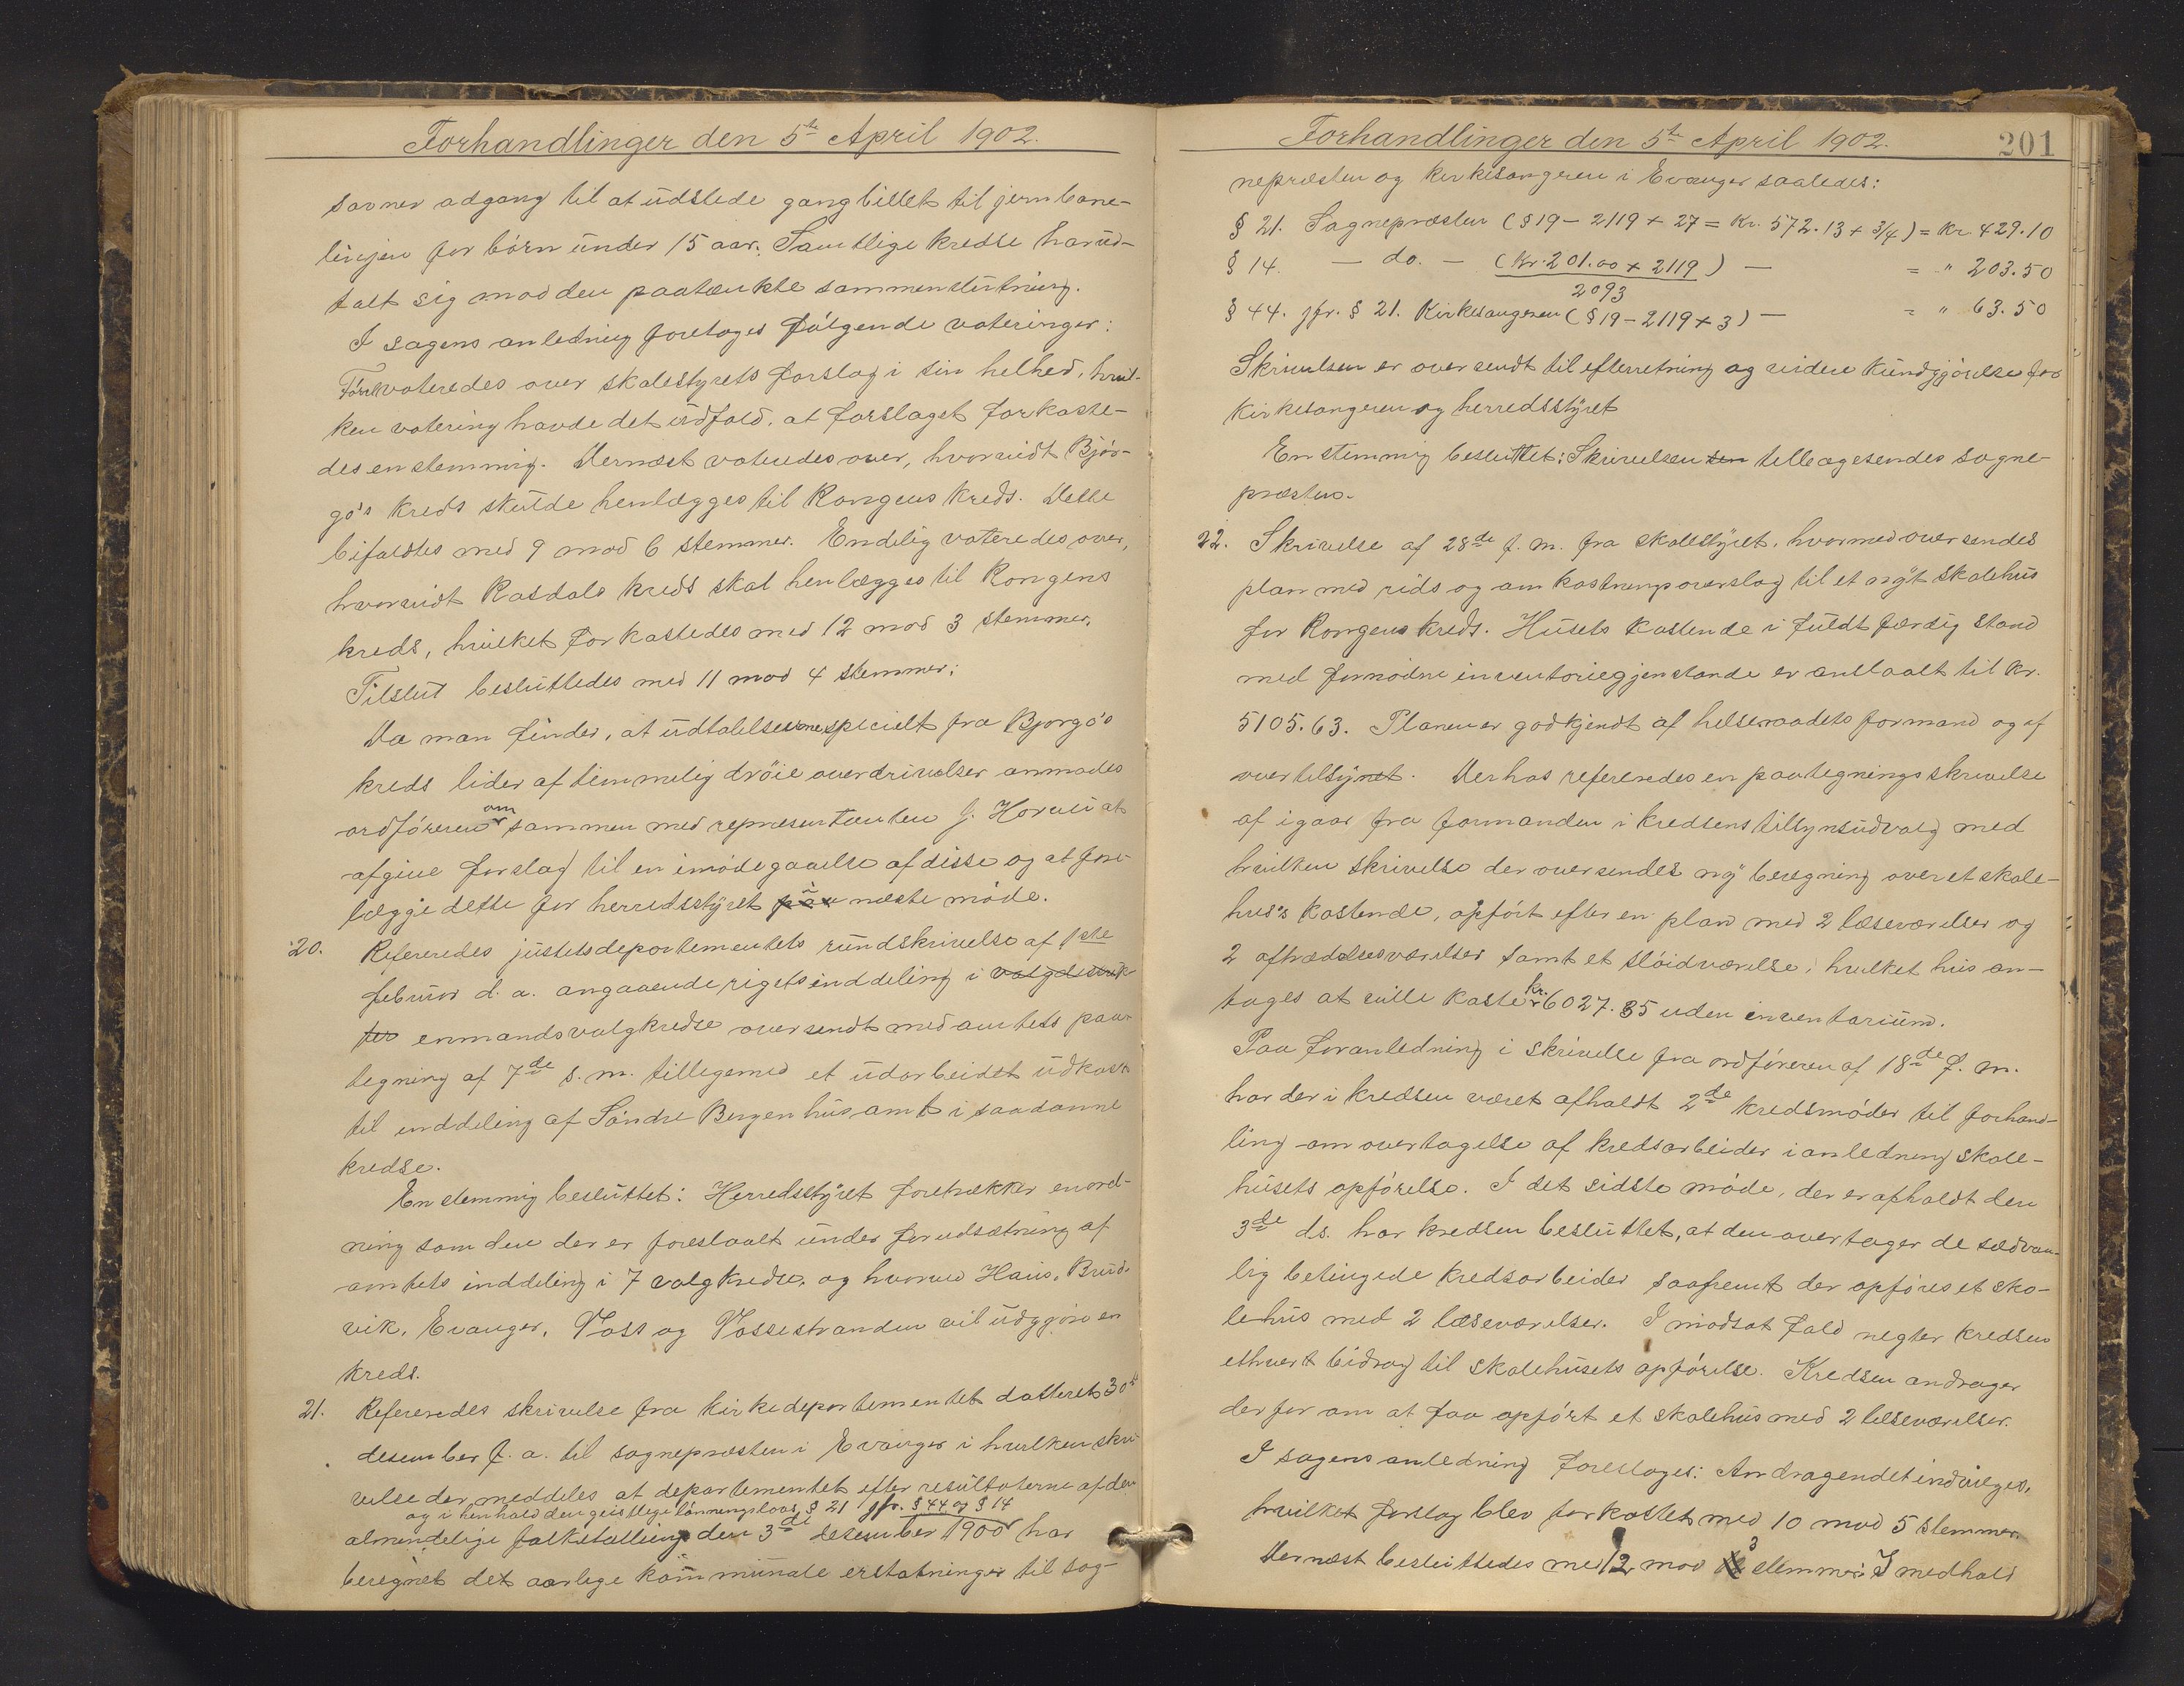 Forhandlinger den 5te April 1902.
savner adgang til at udstede gangbillet til jernbane-
linjen for börn under 15 aar. Samtlige kredse har ud-
talt sig mod den paatænkte sammenslutning.
I sagens anledning foretoges fölgende voteringer:
Först voteredes over skolestyrets forslag i sin helhed, hvil-
ken votering havde det udfald, at forslaget forkaste-
des enstemmig. Dernæst voteredes over, hvorvidt Björ-
gö's kreds skulde henlægges til Rongens kreds. Dette
bifaldtes med 9 mod 6 stemmer. Endelig voteredes over,
hvorvidt Rasdals kreds skal henlægges til Rongens
kreds, hvilket forkastedes med 12 mod 3 stemmer.
Tilslut besluttedes med 11 mod 4 stemmer:
Da man finder, at udtalelserne specielt fra Bjorgö's
kreds lider af temmelig dröie overdrivelser anmodes
ordföreren om sammen med representanten J. Horvei at
afgive forslag til en imödegaaelse af disse og at fore-
lægge dette for herredsstyret paa næste möde.
20. Refereredes justitsdepartementets rundskrivelse af 1ste
februar d. a. angaaende rigets inddeling i valgdistrik-
ter enmandsvalgkredse oversendt med amtets paa-
tegning af 7de s. m. tilligemed et udarbeidet udkast
til inddeling af Söndre Bergenhus amt i saadanne
kredse.
Enstemmig besluttet: Herredsstyret foretrækker en ord-
ning som den der er foreslaalt under forudsætning af
amtets inddeling i 7 valgkredse, og hvorved Haus, Brud-
vik, Evanger, Voss og Vossestranden vil udggjöre en
kreds.
21. Refereredes skrivelse fra kirkedepartementet datteret 30te
desember f. a. til sognepræsten i Evanger i hvilken skri-
velse der meddeles at departementet efter resultaterne af den
og i henhold den geistlige lönningslovs § 21 jfr. § 44 og § 14
almindelige folketælling den 3de desember 1900 har
beregnet det aarlige kommunale erstatninger til sog-
Forhandlinger den 5te April 1902.
201
nepræsten og kirkesangeren i Evanger saaledes:
§ 21. Sognepræsten (§ 19 - 2119 + 27 = Kr. 572.13 + 3/4) = Kr. 429.10
§ 14. — do. — (Kr. 201.00 × 2119) — = " 203.50
2093
§ 44. jfr. § 21. Kirkesangeren (§ 19 - 2119 + 3) — = " 63.50
Skrivelsen er oversendt til efterretning og videre kundgjörelse for
kirkesangeren og herredsstyret
Enstemmig besluttet: Skrivelsen sen tilbagesendes sogne-
præsten.
22. Skrivelse af 28de f. m. fra skolestyret, hvormed oversendes
plan med rids og omkostningsoverslag til et nyt skolehus
for Rongens kreds. Husets kostende i fuldt færdig stand
med fornödne inventariegjenstande er anslaalt til kr.
5105.63. Planen er godkjendt af helseraadets formand og af
overtilsynet. Derhos refereredes en paategningsskrivelse
af igaar fra formanden i kredsens tilsynsudvalg med
hvilken skrivelse der oversendes ny beregning over et skole-
hus's kostende, opfört efter en plan med 2 læseværelser og
2 aftrædelsesværelser samt et slöidværelse, hvilket hus an-
tages at ville koste kr. 6027.35 uden inventarium.
Paa foranledning i skrivelse fra ordföreren af 18de f. m.
har der i kredsen været afholdt 2de kredsmöder til forhand-
ling om overtagelse af kredsarbeider i anledning skole-
husets opförelse. I det sidste möde, der er afholdt den
3de ds. har kredsen besluttet, at den overtager de sædvan-
lig betingede kredsarbeider saafremt der opföres et sko-
lehus med 2 læseværelser. I modsat fald negter kredsen
ethvert bidrag til skolehusets opförelse. Kredsen andrager
derfor om at faa opfört et skolehus med 2 læseværelser.
I sagens anledning foresloges: Andragendet indvilges,
hvilket forslag blev forkastet med 10 mod 5 stemmer.
Dernæst besluttedes med 12 mod 3 stemmer: I medhold